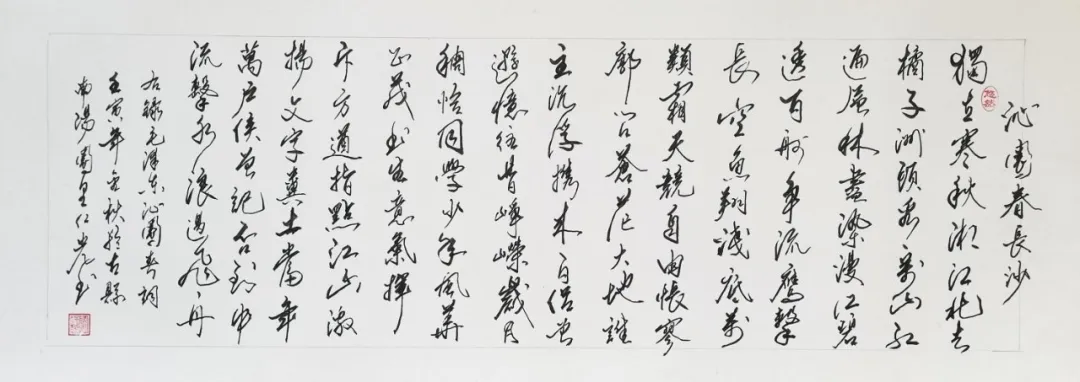 沁園春長沙
獨立寒秋湘江北去
橘子洲頭看萬山紅
遍層林盡染漫江碧
透百舸爭流鷹擊
長空魚翔淺底萬
類霜天競自由悵寥
廓問蒼茫大地誰
主沉浮攜來百侣曾
遊憶往昔崢嶸歲月
稠恰同學少年風華
正茂書生意氣揮
斥方遒指點江山激
揚文字糞土當年
萬户侯曾記否到中
流擊水浪遏飛舟
右錄毛澤東沁園春詞
壬寅年金秋於古縣
南陽